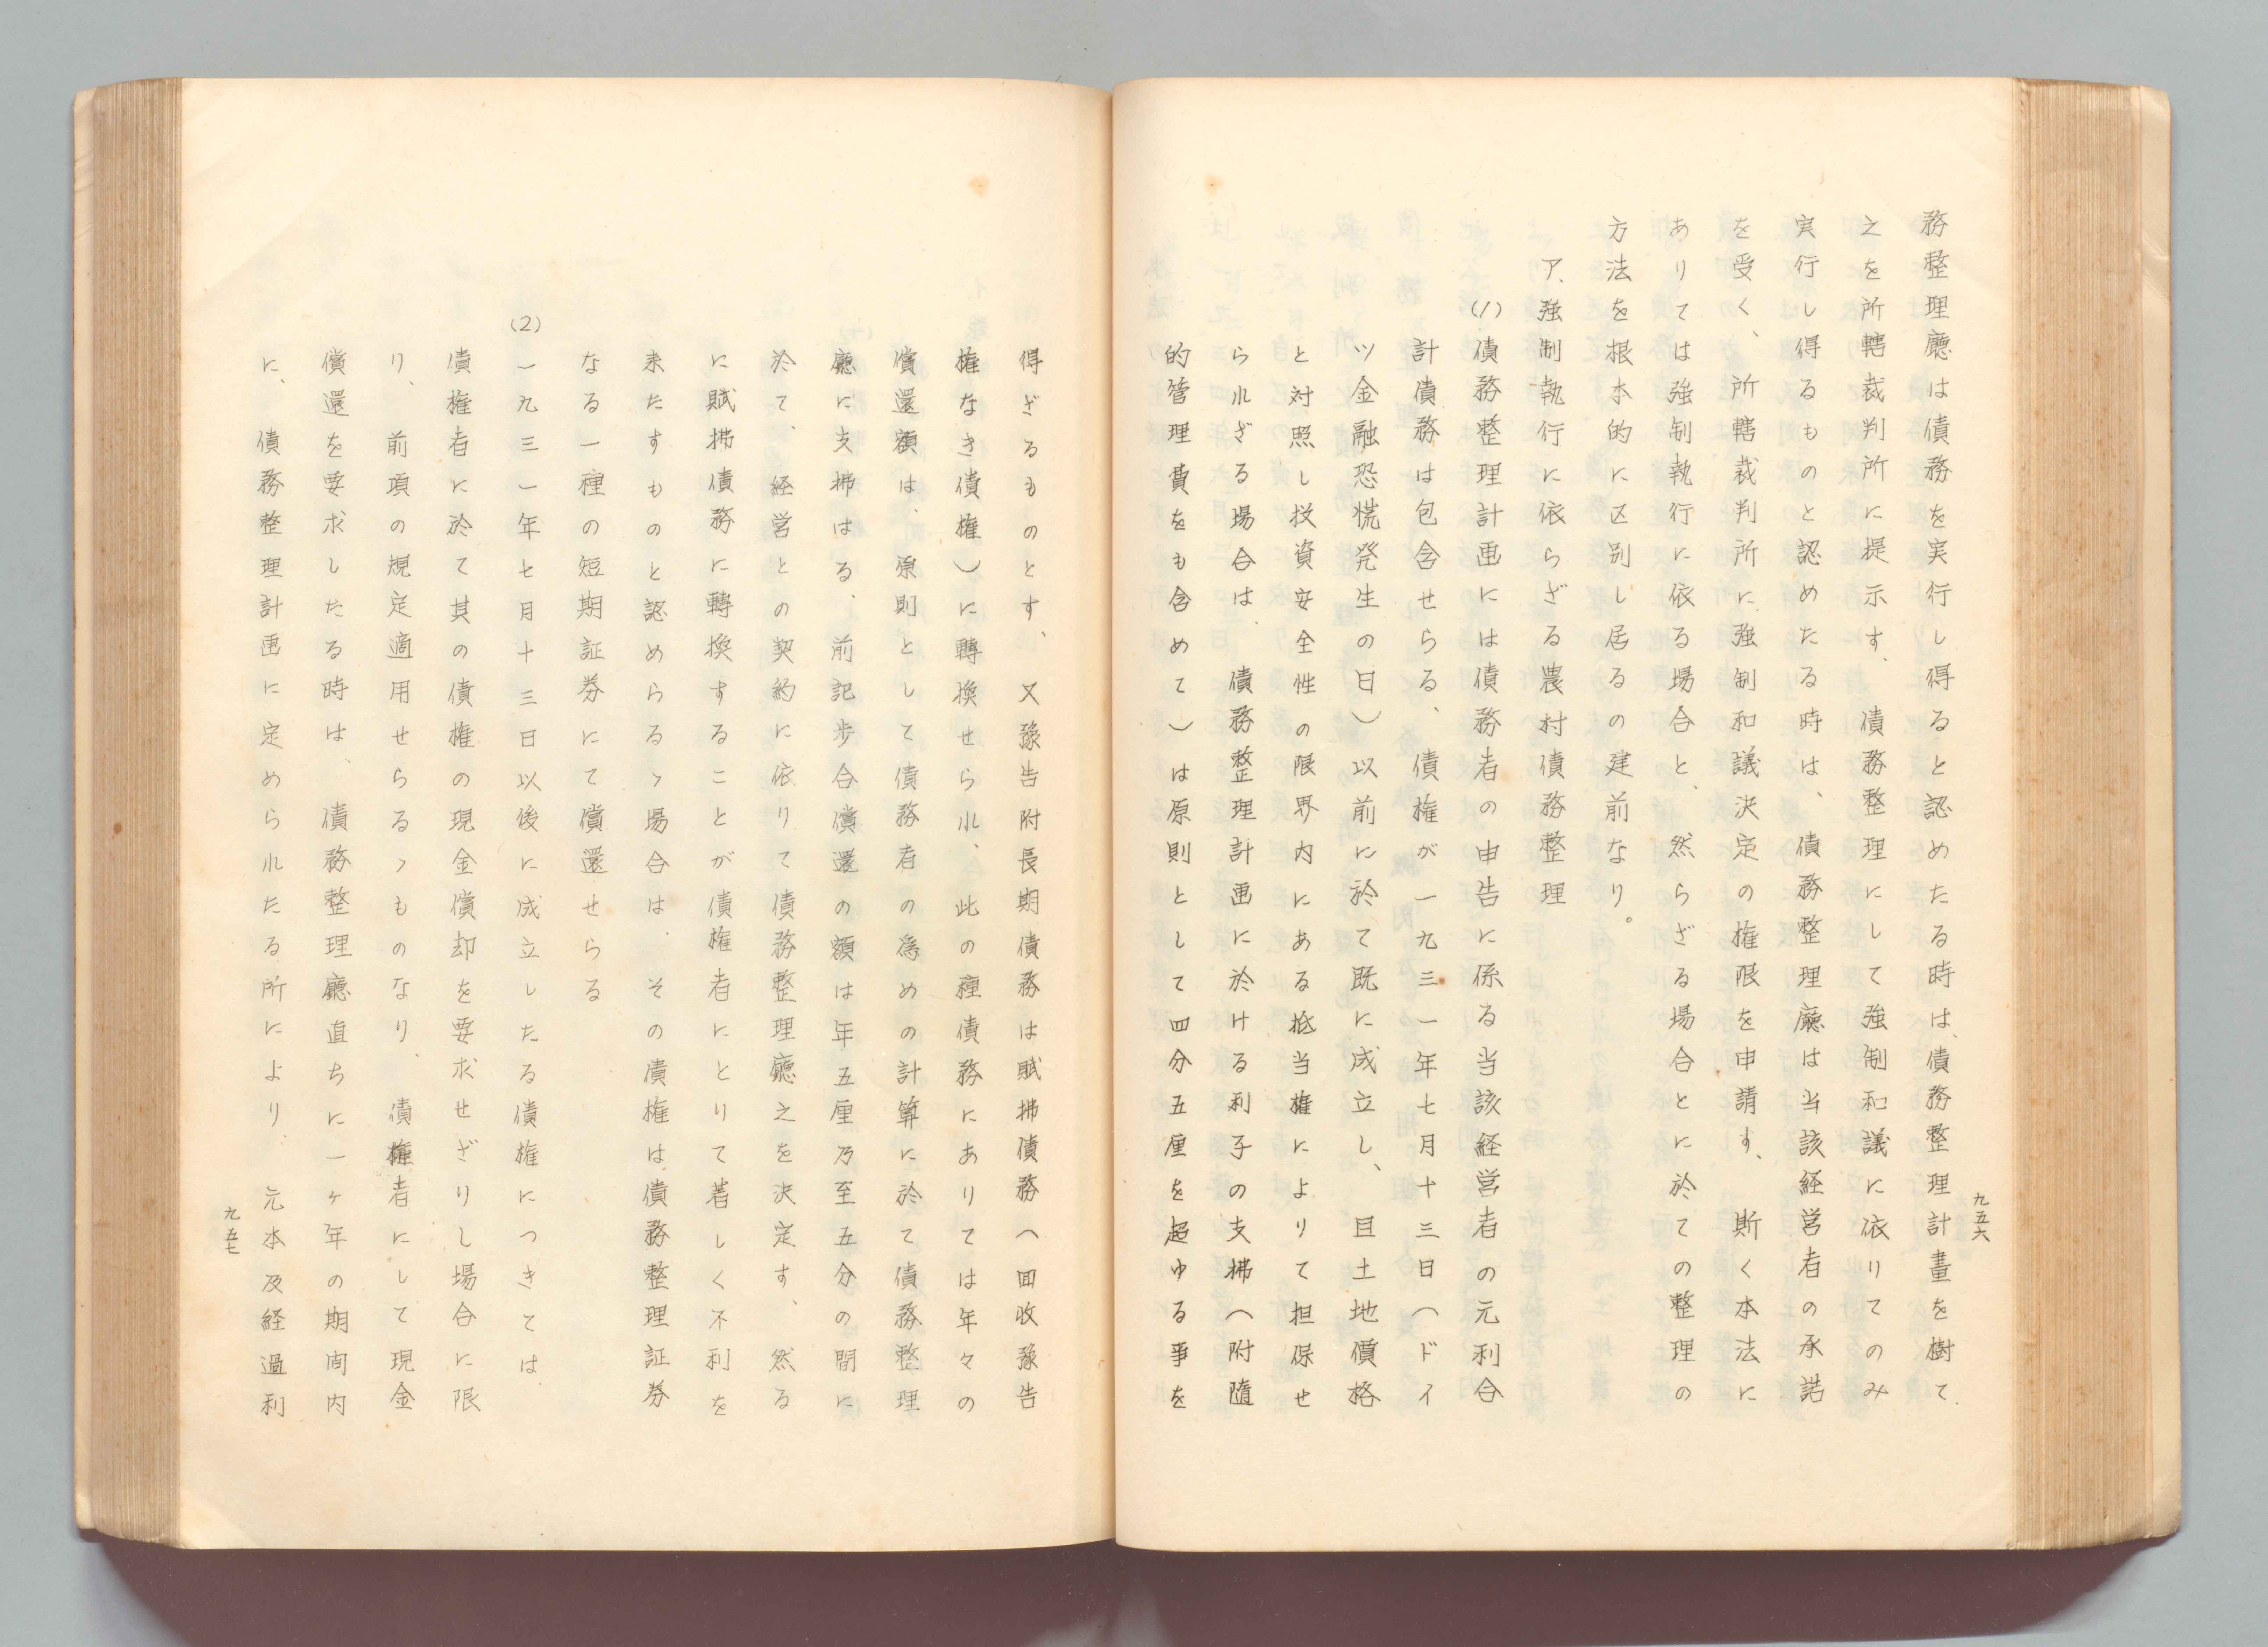 九五六
務整理廳は債務を実行し得ると認めたる時は、債務整理計畫を樹て、
之を所轄裁判所に提示す、債務整理にして強制和議に依りてのみ
実行し得るものと認めたる時は、債務整理廳は当該経営者の承諾
を受く、所轄裁判所に強制和議決定の権限を申請す、斯く本法に
ありては強制執行に依る場合と、然らざる場合とに於ての整理の
方法を根本的に区別し居るの建前なり。
ア、強制執行に依らざる農村債務整理
(1)債務整理計画には債務者の申告に係る当該経営者の元利合
計債務は包含せらる、債権が一九三一年七月十三日(ドイ
ツ金融恐慌発生の日)以前に於て既に成立し、且土地價格
と対照し投資安全性の限界内にある抵当権によりて担保せ
られざる場合は、債務整理計画に於ける利子の支拂(附隨
的管理費をも含めて)は原則として四分五厘を超ゆる事を
得ざるものとす、又豫告附長期債務は賦拂債務(回收豫告
権なき債権)に轉換せられ、此の種債務にありては年々の
償還額は、原則として債務者の為めの計算に於て債務整理
廳に支拂はる、前記歩合償還の額は年五厘乃至五分の間に
於て、経営との契約に依りて債務整理廳之を決定す、然る
に賦拂債務に轉換することが債権者にとりて著しく不利を
来たすものと認めらるゝ場合は、その債権は債務整理証券
なる一種の短期証券にて償還せらる
(2)一九三一年七月十三日以後に成立したる債権につきては、
債権者に於て其の債権の現金償却を要求せざりし場合に限
り、前項の規定適用せらるゝものなり、債権者にして現金
償還を要求したる時は、債務整理廳直ちに一ヶ年の期間内
に、債務整理計画に定められたる所により、元本及経過利
九五七